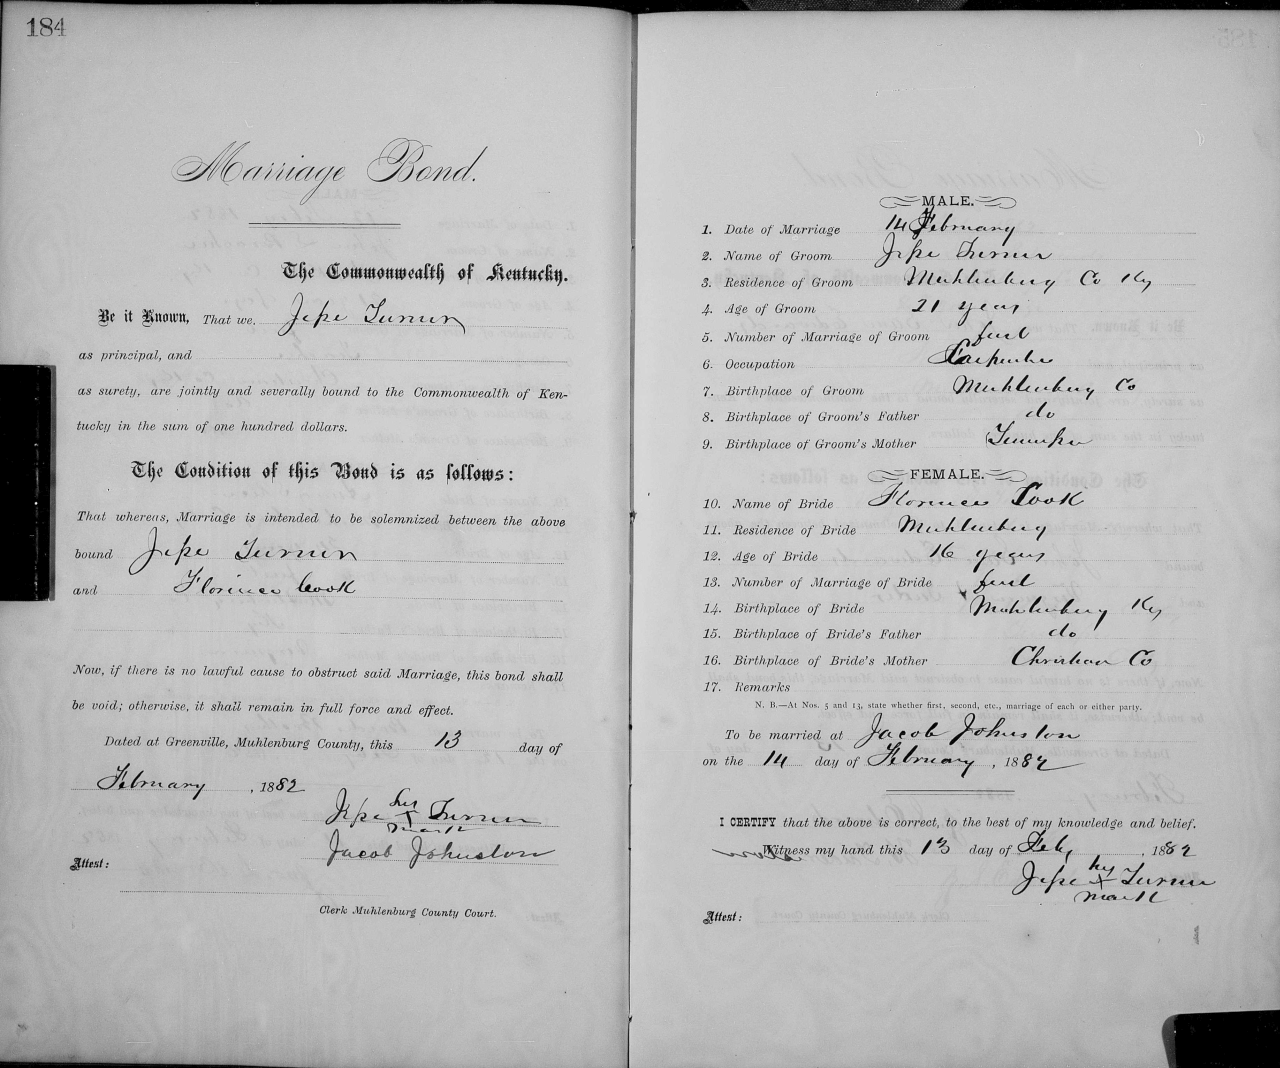 184
Marriage Bond.
The Commonwealth of Kentucky.
Be it Known, That we, Jesse Turner
as principal, and
as surety, are jointly and severally bound to the Commonwealth of Ken-
tucky in the sum of one hundred dollars.
The Condition of this Bond is as follows:
That whereas, Marriage is intended to be solemnized between the above
bound Jesse Turner
and Florence Cook
Now, if there is no lawful cause to obstruct said Marriage, this bond shall
be void; otherwise, it shall remain in full force and effect.
Dated at Greenville, Muhlenburg County, this 13 day of
February, 1882
Jesse his x mark Turner
Jacob Johnston
Attest:
Clerk Muhlenburg County Court.
MALE.
1. Date of Marriage 14 February
2. Name of Groom Jesse Turner
3. Residence of Groom Muhlenburg Co Ky
4. Age of Groom 21 years
5. Number of Marriage of Groom first
6. Occupation Carpenter
7. Birthplace of Groom Muhlenburg Co
8. Birthplace of Groom's Father do
9. Birthplace of Groom's Mother Tennessee
FEMALE.
10. Name of Bride Florence Cook
11. Residence of Bride Muhlenburg
12. Age of Bride 16 years
13. Number of Marriage of Bride first
14. Birthplace of Bride Muhlenburg Ky
15. Birthplace of Bride's Father do
16. Birthplace of Bride's Mother Christian Co
17. Remarks
N. B.—At Nos. 5 and 13, state whether first, second, etc., marriage of each or either party.
To be married at Jacob Johnston
on the 14 day of February, 1882
I CERTIFY that the above is correct, to the best of my knowledge and belief.
Witness my hand this 13 day of Feby, 1882
Jesse his x mark Turner
Attest: